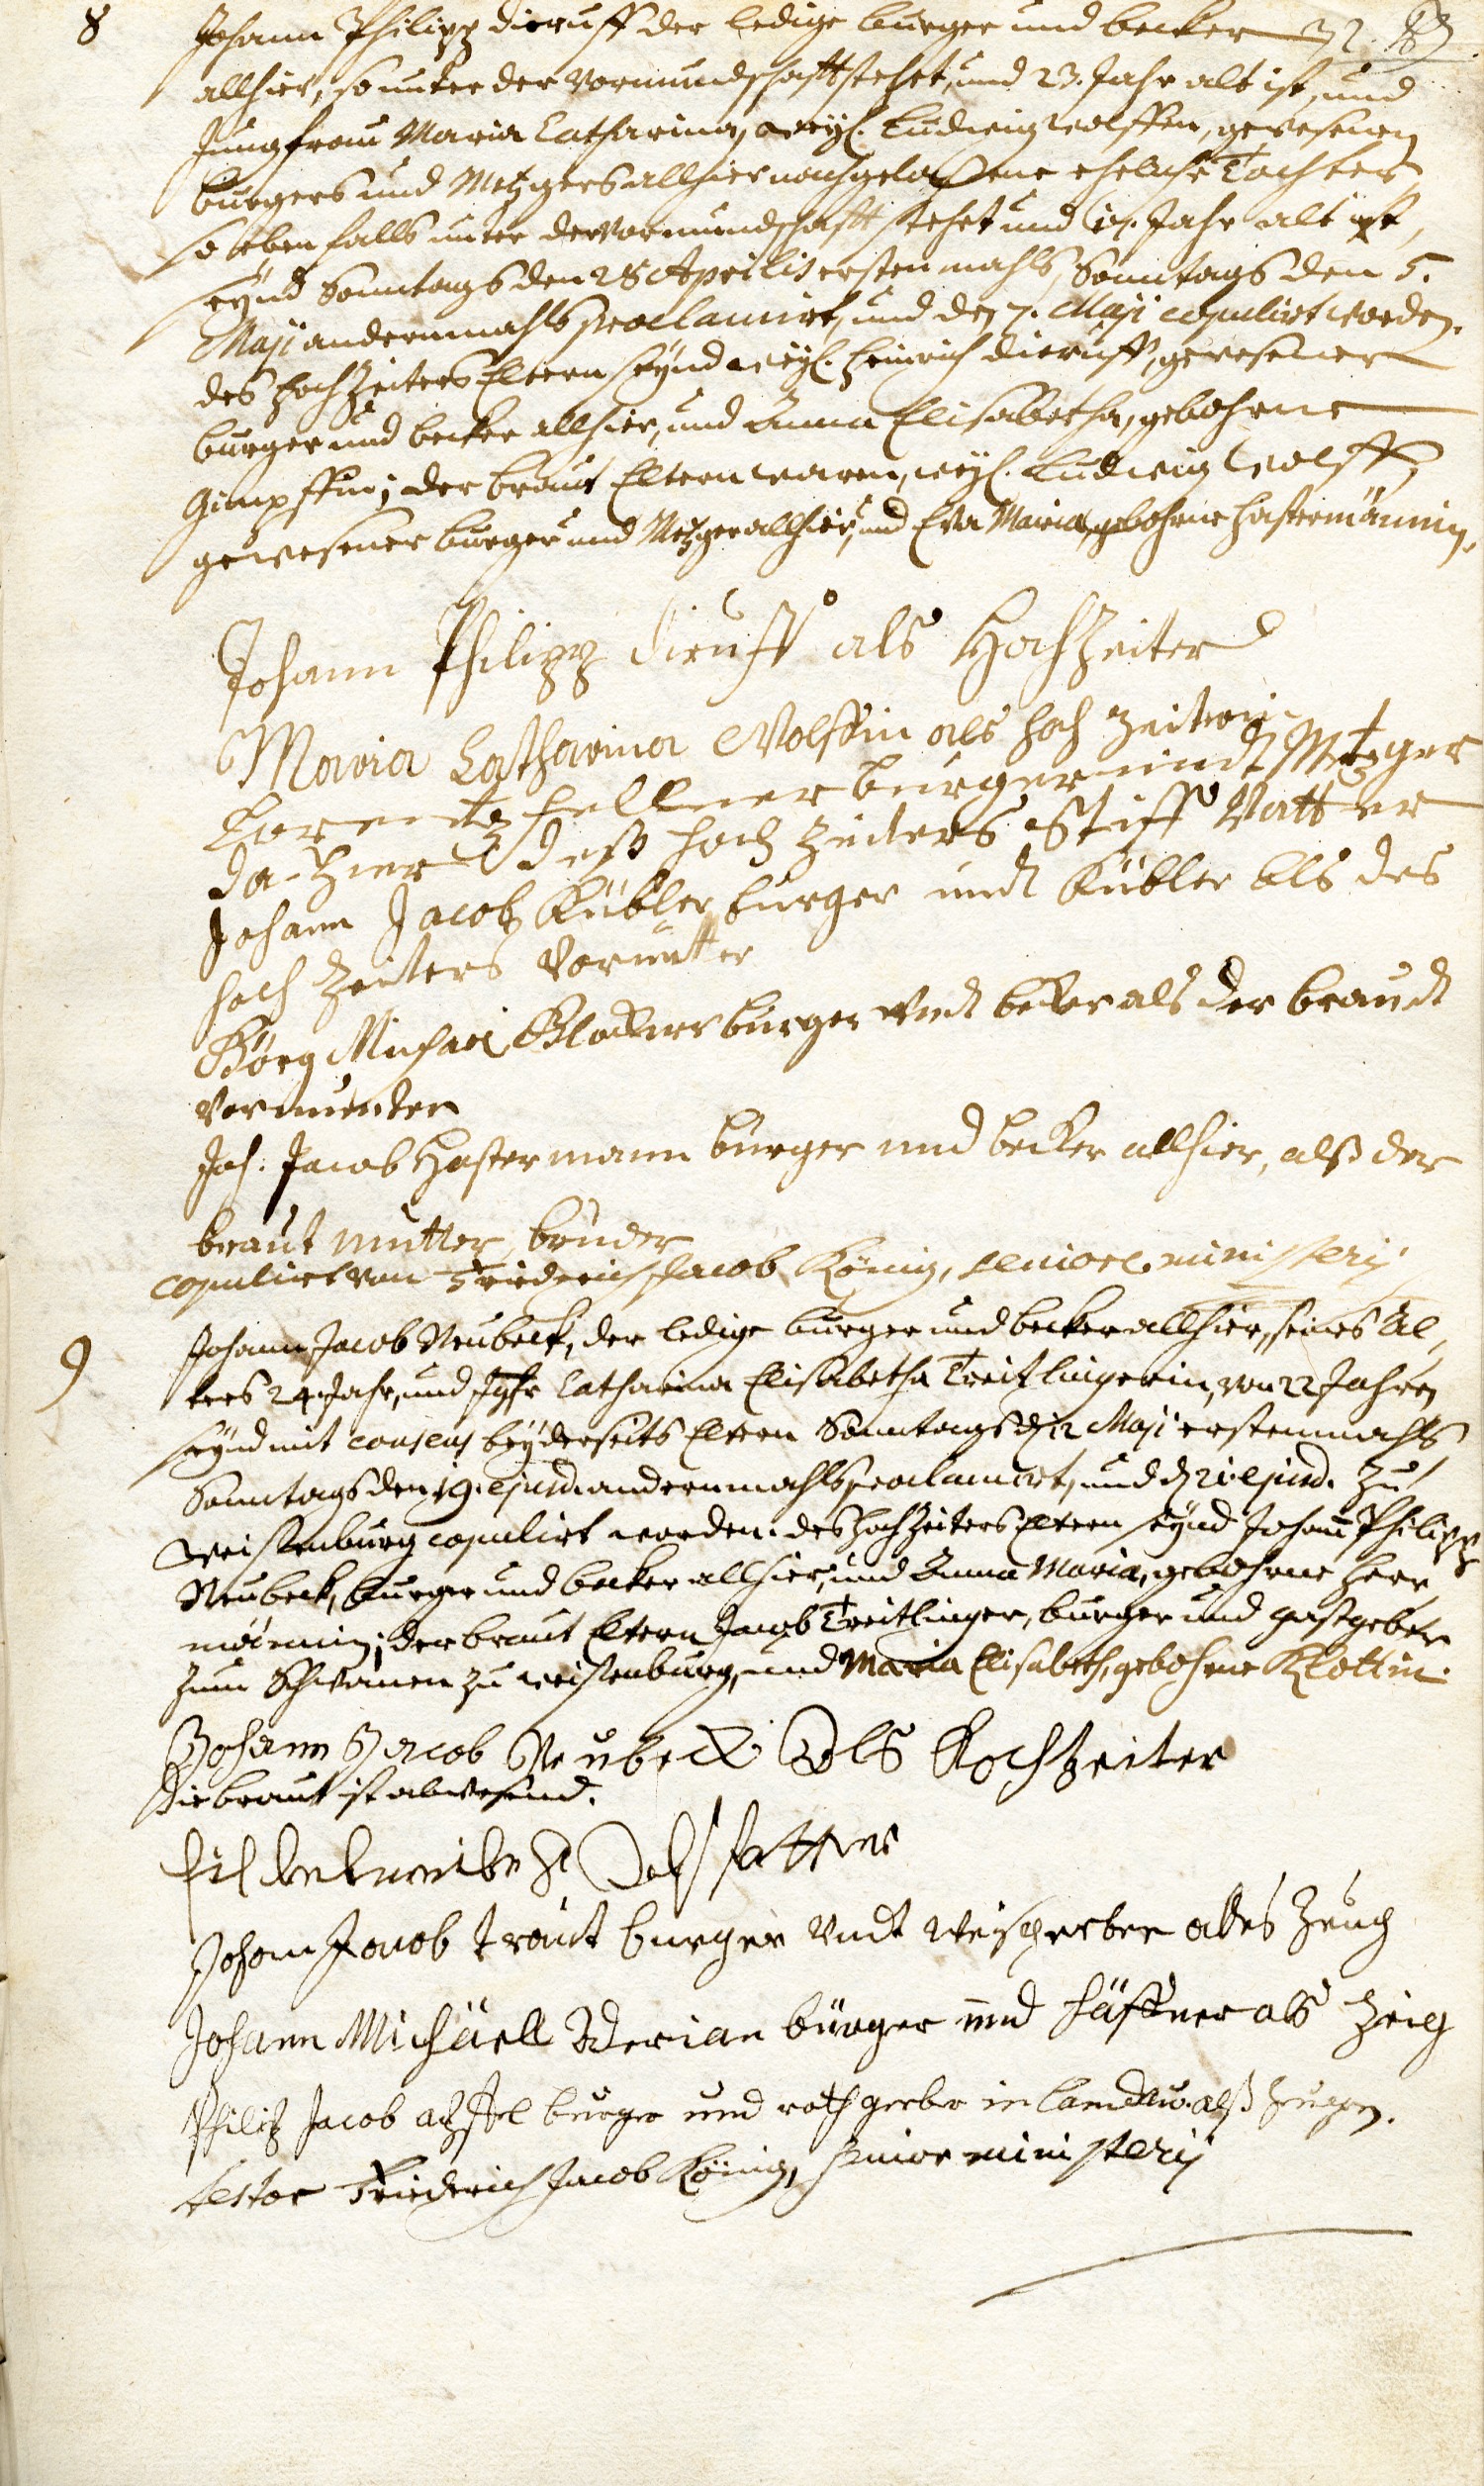 8 Johann Philipp Dieruff der ledige burger und becker 32.
allhier, so unter der Vormundschafft stehet, und 23. Jahr alt ist, und
Jungfrau Maria Catharina, weyl. Ludwig Wolffen, gewesenen
burgers und Metzgers allhier nachgelassene eheliche Tochter,
so ebenfalls unter der Vormundschafft stehet und Jahr alt ist,
seynd Sonntags den 28 Aprilis erstenmahls, Sonntags den 5.
Maji andernmahls proclamirt, und den 7. Maji copulirt worden.
des Hochzeiters Eltern seynd weyl. Heinrich Dieruff, gewesener
burger und becker allhier, und Anna Elisabetha, gebohrne
Gimpffin; der braut Eltern waren, weyl. Ludwig Wolff,
gewesener burger und Metzger allhier, und Eva Maria, gebohrne Hastermännin.
Johann Philipp Dieruff als Hochzeiter
Maria Catharina Wolffin als hoch zeiterin
Lorentz Fellner burger undt Metzger
da hier deß hoch zeiters Stiff Vatter
Johann Jacob Kübler burger undt Kübler als des
hoch Zeiters Vormutter
Görg Michael burger undt becker als der braudt
Vormunder
Joh: Jacob Hastermann burger und becker allhier, alß der
braut mutter, bruder
copulirt von Friederich Jacob König, seniore ministerij
9 Johann Jacob Neubeck, der ledige burger und becker allhier, seines Al-
ters 24. Jahr, und Jgfr Catharina Elisabetha Treitlingerin, von 22 Jahren
seynd mit consens beyderseits Eltern Sonntags d. 12 Maji erstenmahls
Sonntags den 19. ejusd. andernmahls proclamirt, und d. 21 ejusd. zu
Weissenburg copulirt worden. des Hochzeiters Eltern seynd Johann Philipp
Neubeck, burger und becker allhier, und Anna Maria, gebohrne Herr-
männin; der braut Eltern Jacob Treitlinger, burger und gastgeber
zum Schwanen zu Weissenburg, und Maria Elisabeth, gebohrne Klottin.
Johann Jacob Neubeck Als Hochzeiter
Die braut ist abwesend.
als Vatter
Johan Jacob Traut burger Undt Weisgerber als Zeug
Johann Michäell burger und Häffner als Zeig
Philip Jacob burger und rothgerber in Landau. alß Zeugen.
testor Friederich Jacob König, senior ministerij